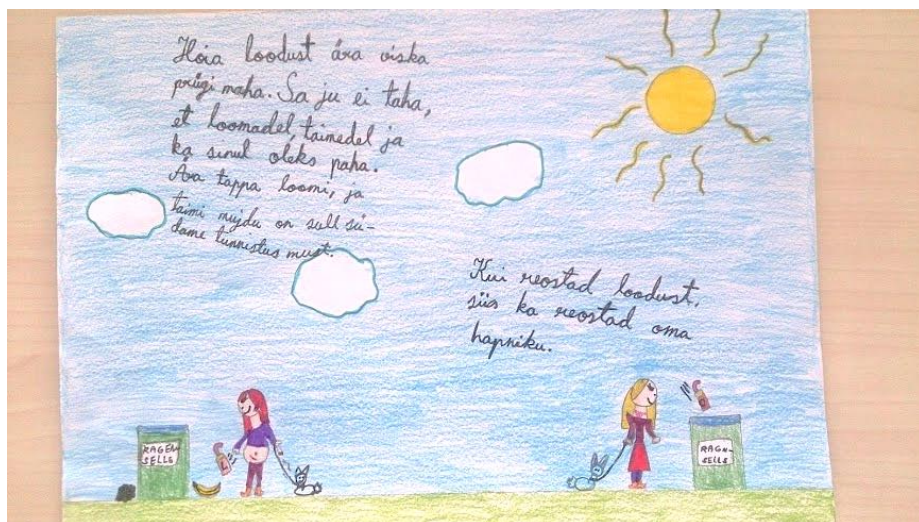 Hoia loodust ära viska
prügi maha. Sa ju ei taha,
et loomadel, taimedel ja
ka sinul oleks paha.
Ära tappa loomi, ja
taimi mujdu on sull sü-
dame tunnistus must.
Kui reostad loodust,
siis ka reostad oma
hapniku.
RAGEN
SELLS
RAGN-
SELLS